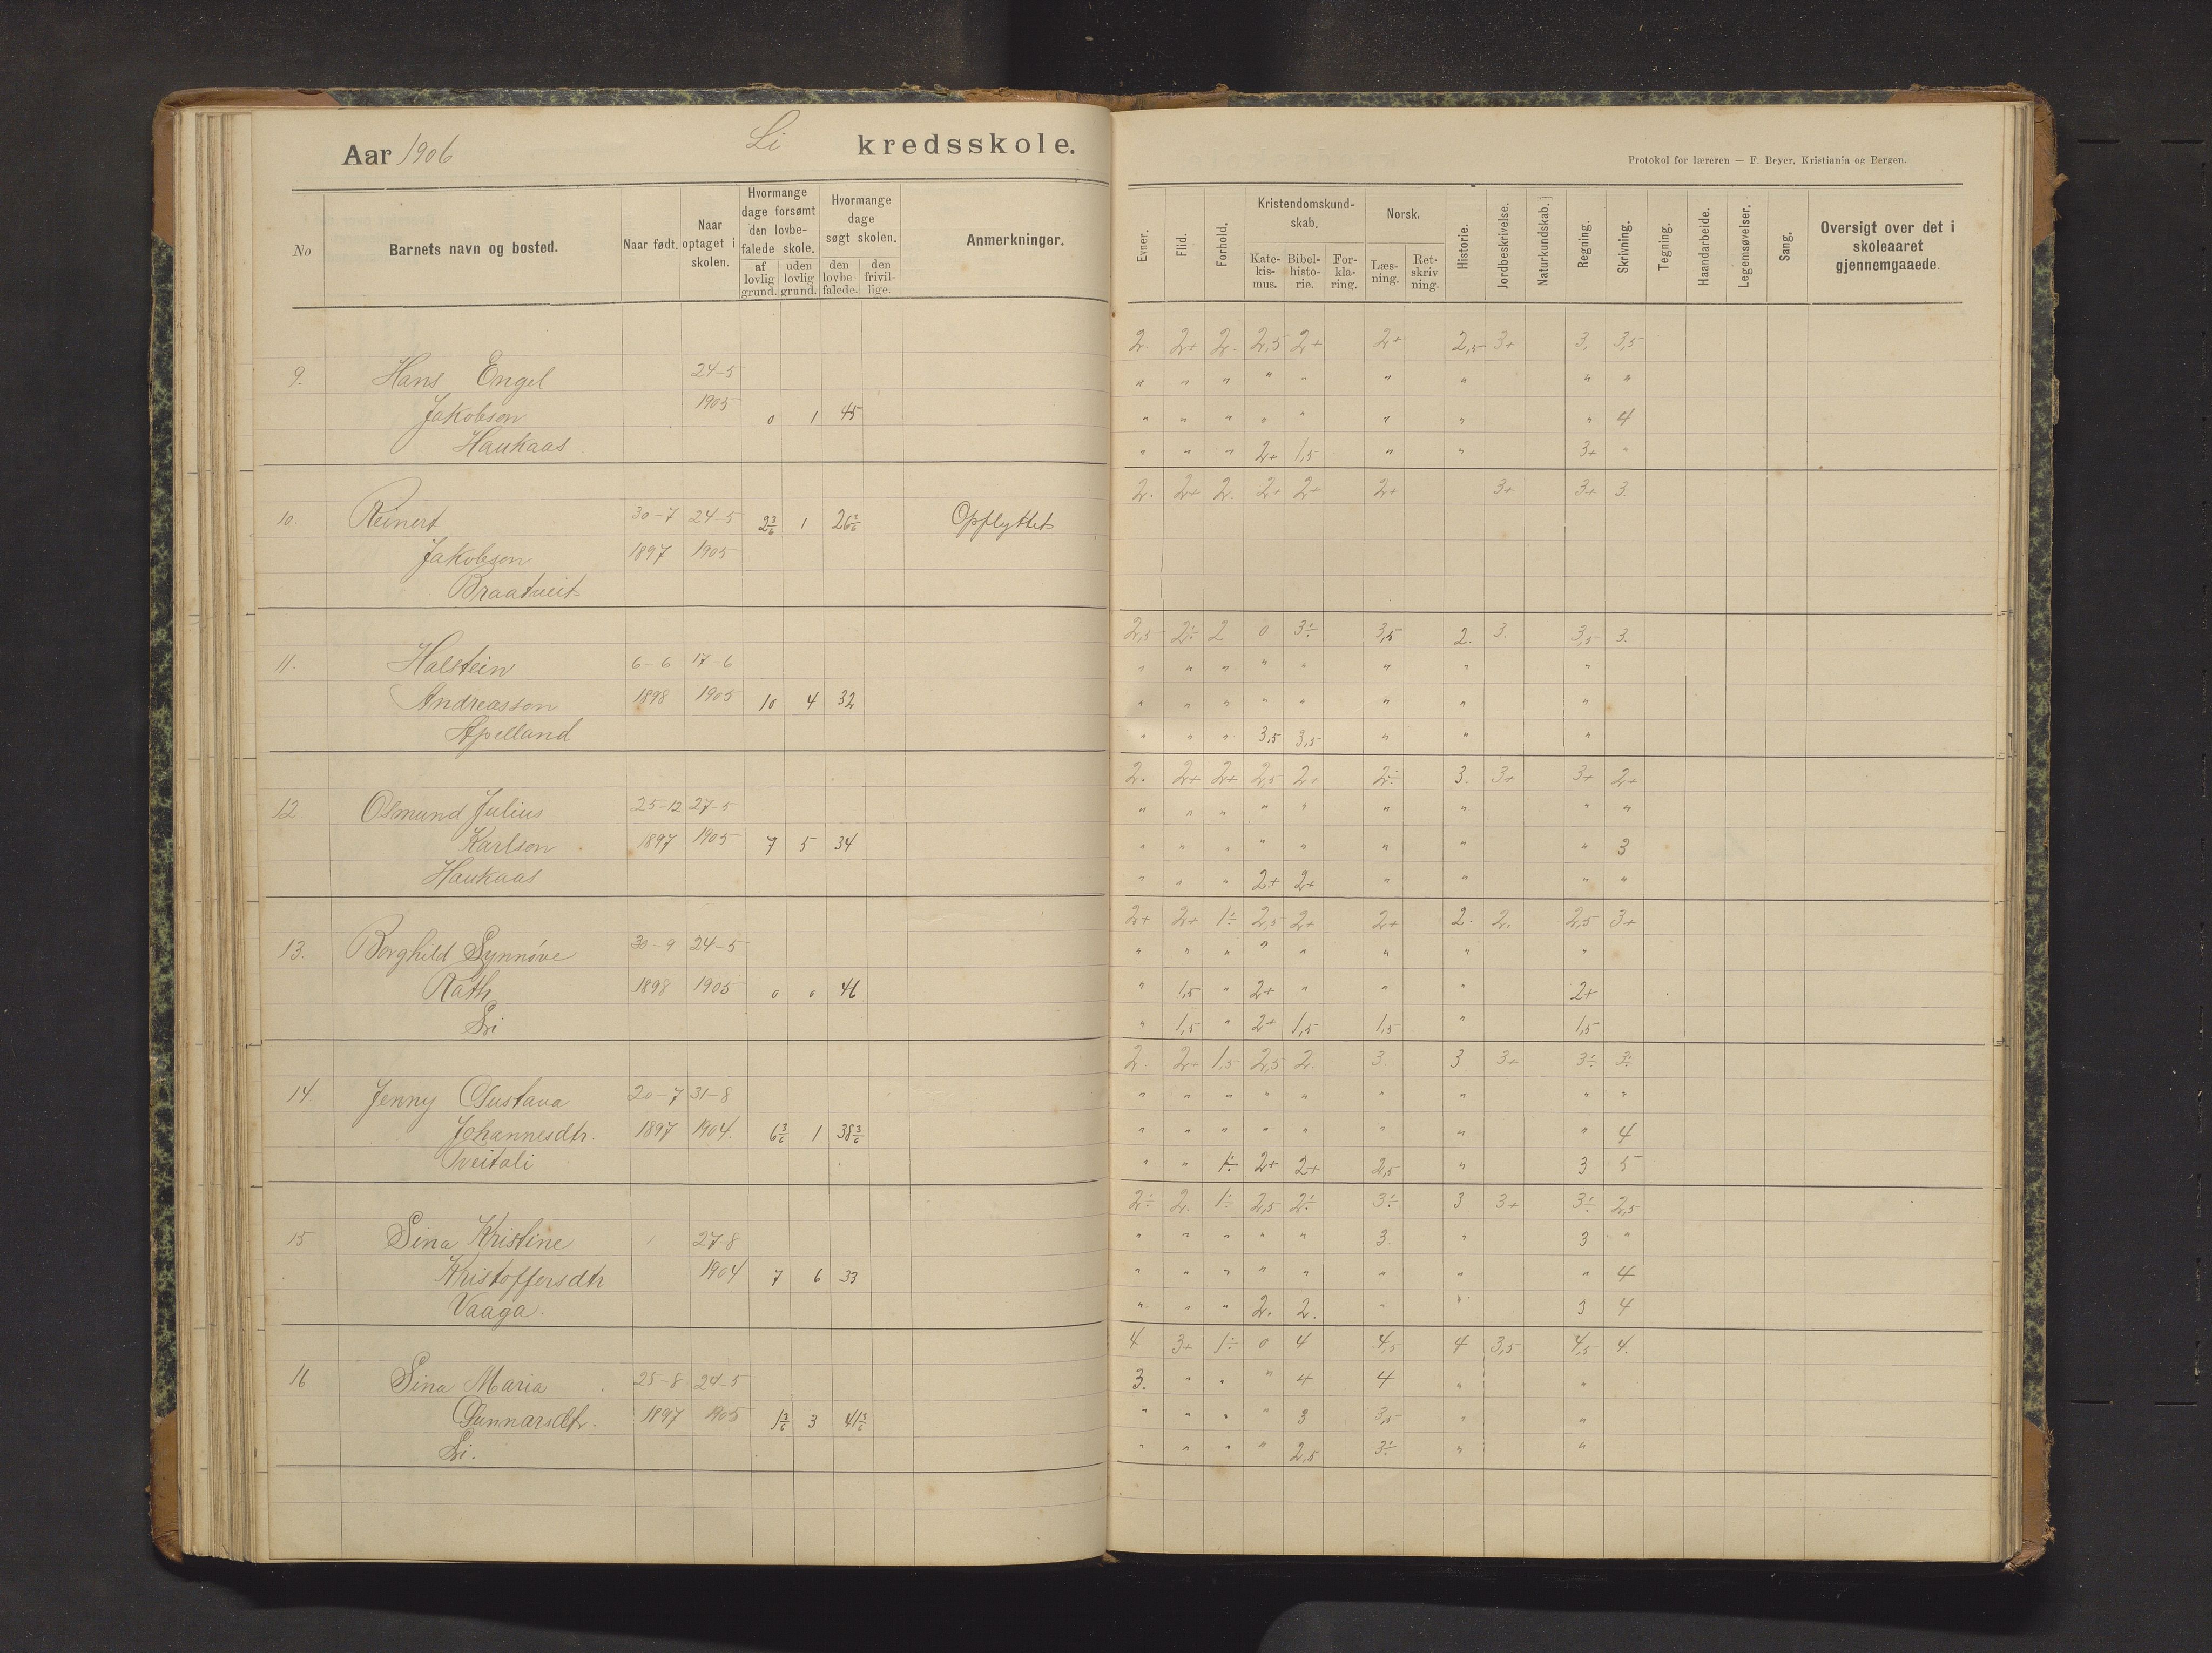 Aar 1906 Li kredsskole.
Protokol for læreren — F. Beyer, Kristiania og Bergen.
No Barnets navn og bosted. Naar født. Naar optaget i skolen. Hvormange dage forsømt den lovbefalede skole. af lovlig grund. uden lovlig grund. Hvormange dage søgt skolen. den lovbefalede. den frivillige. Anmerkninger.
Evner. Flid. Forhold. Kristendomskundskab. Katekismus. Bibelhistorie. Forklaring. Norsk. Læsning. Retskrivning. Historie. Jordbeskrivelse. Naturkundskab. Regning. Skrivning. Tegning. Haandarbeide. Legemsøvelser. Sang. Oversigt over det i skoleaaret gjennemgaaede.
2. 2+ 2. 2,5 2+ 2+ 2,5 3+ 3. 3,5
9. Hans Engel 24-5 " " " " " " " " "
Jakobson 1905 0 1 45 " " " " " " " " 4
Haukaas " " " 2+ 1,5 " " 3+ "
2. 2+ 2. 2+ 2+ 2+ 3+ 3+ 3.
10. Reinert 30-7 24-5 2 3/6 1 26 3/6 Opflyttet
Jakobson 1897 1905
Braatveit
2,5 2÷ 2 0 3÷ 3,5 2. 3. 3,5 3.
11. Halstein 6-6 17-6 " " " " " " " "
Andreasson 1898 1905 10 4 32 " " " " " " " "
Apelland " " " 3,5 3,5 " " "
2. 2+ 2+ 2,5 2+ 2÷ 3. 3+ 3+ 2+
12 Osmund Julius 25-12 27-5 " " " " " " " " "
Karlson 1897 1905 7 5 34 " " " " " " " " 3
Haukaas " " " 2+ 2+ " " " "
2+ 2+ 1÷ 2,5 2+ 2+ 2. 2. 2,5 3+
13. Borghild Synnøve 30-9 24-5 " " " " " " " "
Rath 1898 1905 0 0 46 " 1,5 " 2+ " " " 2+
Li " 1,5 " 2+ 1,5 1,5 " 1,5
2. 2+ 1,5 2,5 2. 3. 3 3+ 3÷ 3÷
14. Jenny Gustava 20-7 31-8 " " " " " " " " "
Johannesdtr. 1897 1904. 6 3/6 1 38 3/6 " " " " " " " " 4
Tveitali " " 1÷ 2+ 2+ 2,5 " 3 5
2÷ 2. 1÷ 2,5 2÷ 3÷ 3 3+ 3÷ 2,5
15 Sina Kristine 27-8 " " " " " 3. " 3 "
Kristoffersdtr 1904 7 6 33 " " " " " " " " 4
Vaaga. " " " 2. 2. " " 3 4
4 3+ 1÷ 0 4 4,5 4 3,5 4,5 4.
16 Sina Maria 25-8 24-5 3. " " " 4 4 " "
Gunnarsdtr. 1897 1905 1 3/6 3 41 3/6 " " " " 3 3,5 " "
Li. " " " " 2,5 3÷ " "